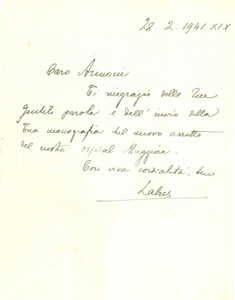 28.2.1941 XIX
Caro Annoni
Ti ringrazio delle Tue
gentili parole e dell'invio della
Tua monografia del nuovo assetto
del nostro ospedal Maggiore.
Con viva cordialità, Tuo